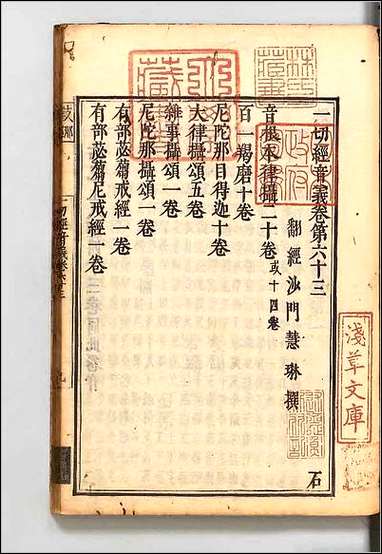 一切經音義卷第六十三
翻經沙門慧琳撰
石
音根本律攝二十卷或十四卷
百一羯磨十卷
尼陀那目得迦十卷
大律攝頌五卷
雜事攝頌一卷
尼陀那攝頌一卷
有部苾蒭戒經一卷
有部苾蒭尼戒經一卷
淺草文庫